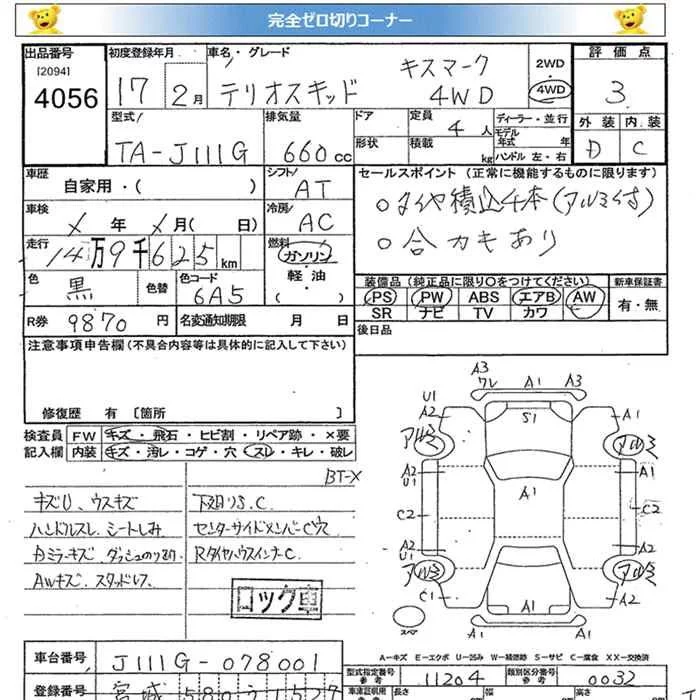 完全ゼロ切りコーナー
出品番号 初度登録年月 車名・グレード 2WD・4WD 評価点
[2094]
4056
17年 2月 テリオスキッド キスマーク 4WD 3
型式 排気量 ドア 定員 4人 ディーラー・並行 外装 内装
TA-J111G 660cc 形状 積載 kg モデル年式 年 ハンドル 左・右 D C
車歴 シフト セールスポイント (正常に機能するものに限ります)
自家用・( ) AT
○タイヤ積込4本(アルミ付)
車検 冷房
X年 X月( 日) AC
○合カギあり
走行 燃料
14万9千625km ガソリン・軽油( )
色 色替 色コード
黒 6A5
装備品 (純正品に限り○をつけてください) 新車保証書
PS PW ABS エアB AW 有・無
SR ナビ TV カワ
R券 9870円 名変通知期限 月 日
後日品
注意事項申告欄(不具合内容等は具体的に記入して下さい)
修復歴 有 〔箇所 〕
検査員 FW キズ・飛石・ヒビ割・リペア跡・×要
記入欄 内装 キズ・汚レ・コゲ・穴・スレ・キレ・破レ
BT-X
キズU、ウスキズ 下廻りS.C.
ハンドルスレ、シートしみ センターサイドメンバーC穴
Dミラーキズ、ダッシュのり跡 RタイヤハウスインナーC.
AWキズ、スタッドレス
ロック車
A3 ワレ A1 A3
U1 A2 S1 A1
アルミ アルミ
A2 U1 A1 A1
C2 C2
A2 U1 A2
アルミ A1 アルミ
C1 A1 A1 A2
スペア
A-キズ E-エクボ U-凹み W-補修跡 S-サビ C-腐食 XX-交換済
車台番号 J111G-078001
型式指定番号 参考 11204 類別区分番号 参考 0032
登録番号 宮城 580 う 1527
車庫証明用 参考 長さ 幅 高さ